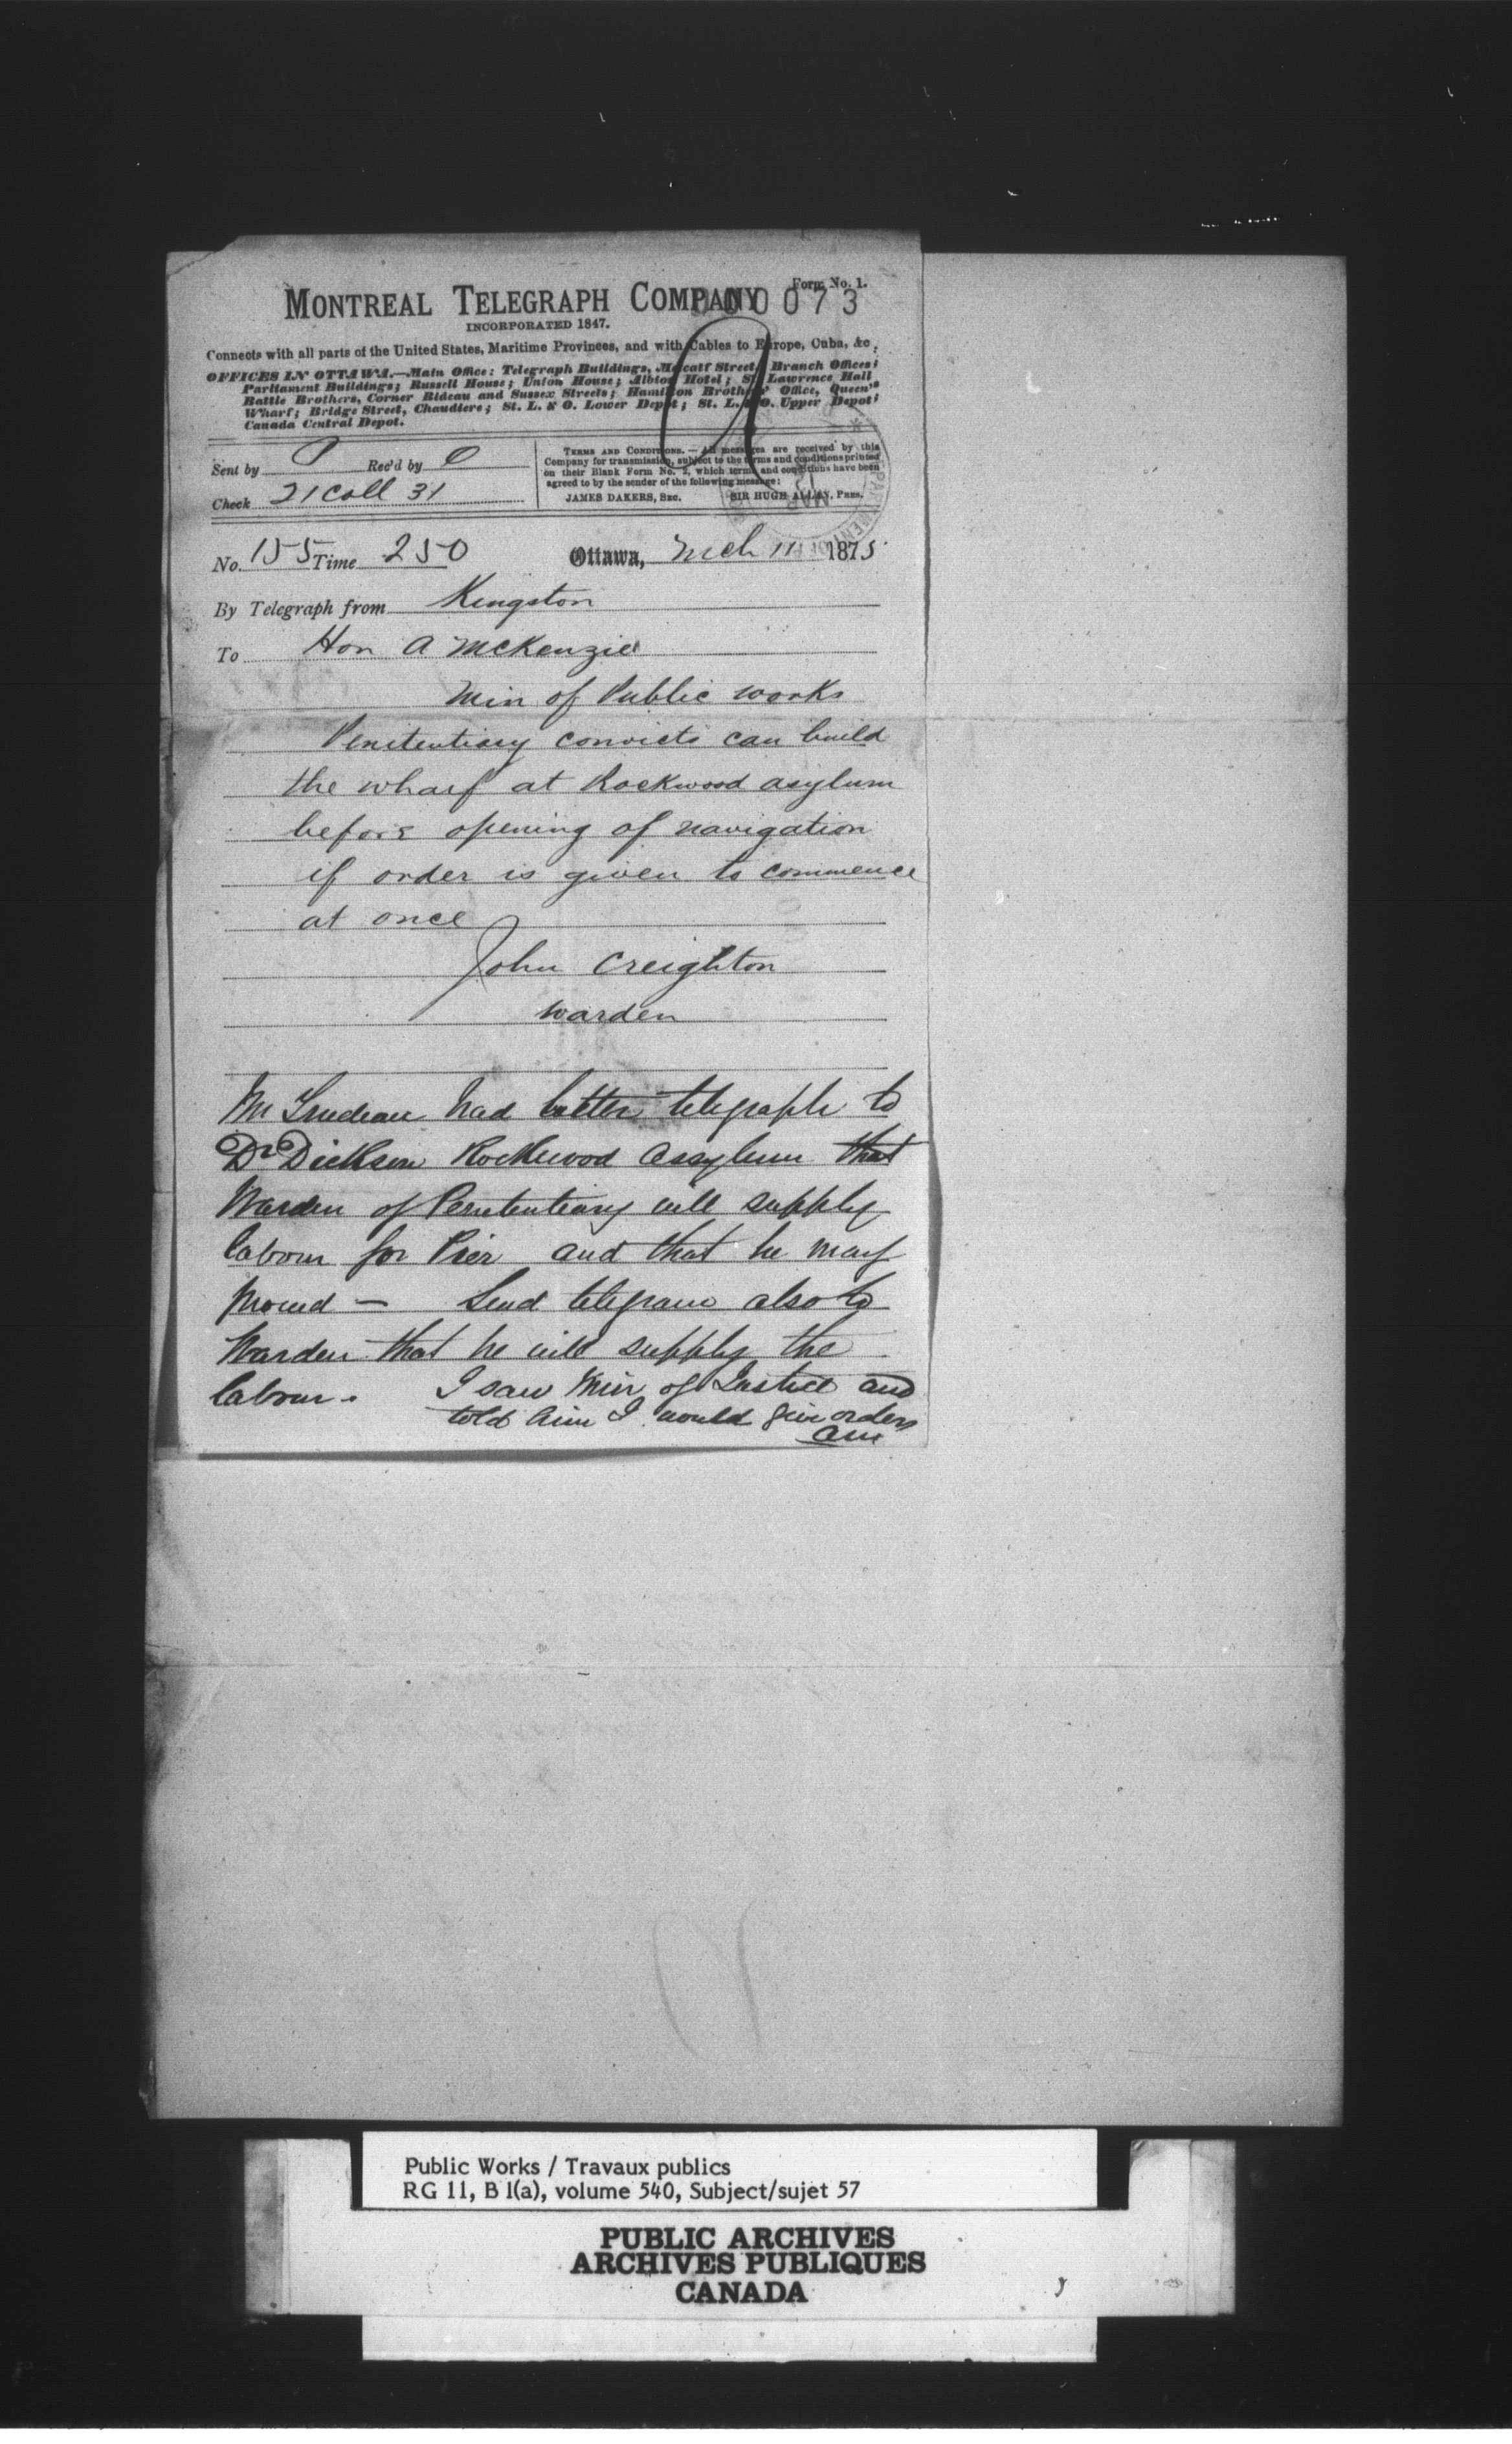 Form No. 1.
MONTREAL TELEGRAPH COMPANY
000073
INCORPORATED 1847.
Connects with all parts of the United States, Maritime Provinces, and with Cables to Europe, Cuba, &c.
OFFICES IN OTTAWA.—Main Office: Telegraph Buildings, Metcalf Street, Branch Offices;
Parliament Buildings; Russell House; Union House; Albion Hotel; St. Lawrence Hall
Battle Brothers, Corner Rideau and Sussex Streets; Hamilton Brothers' Office, Queen's
Wharf; Bridge Street, Chaudiere; St. L. & O. Lower Depot; St. L. & O. Upper Depot;
Canada Central Depot.
Sent by Rec'd by
Check 21 Coll 31
TERMS AND CONDITIONS.—All messages are received by this
Company for transmission, subject to the terms and conditions printed
on their Blank Form No. 2, which terms and conditions have been
agreed to by the sender of the following message:
JAMES DAKERS, SEC. SIR HUGH ALLAN, PRES.
No. 155 Time 250 Ottawa, Mch 11 1875
By Telegraph from Kingston
To Hon A McKenzie
Min of Public works
Penitentiary convicts can build
the wharf at Rockwood asylum
before opening of navigation
if order is given to commence
at once
John Creighton
warden
Mr Trudeau had better telegraph to
Dr Dickson Rockwood Assylum that
Warden of Penitentiary will supply
labour for Pier and that he may
proceed — Send telegram also to
Warden that he will supply the
labour. I saw Min of Justice and
told him I would give orders
AM
Public Works / Travaux publics
RG 11, B 1(a), volume 540, Subject/sujet 57
PUBLIC ARCHIVES
ARCHIVES PUBLIQUES
CANADA